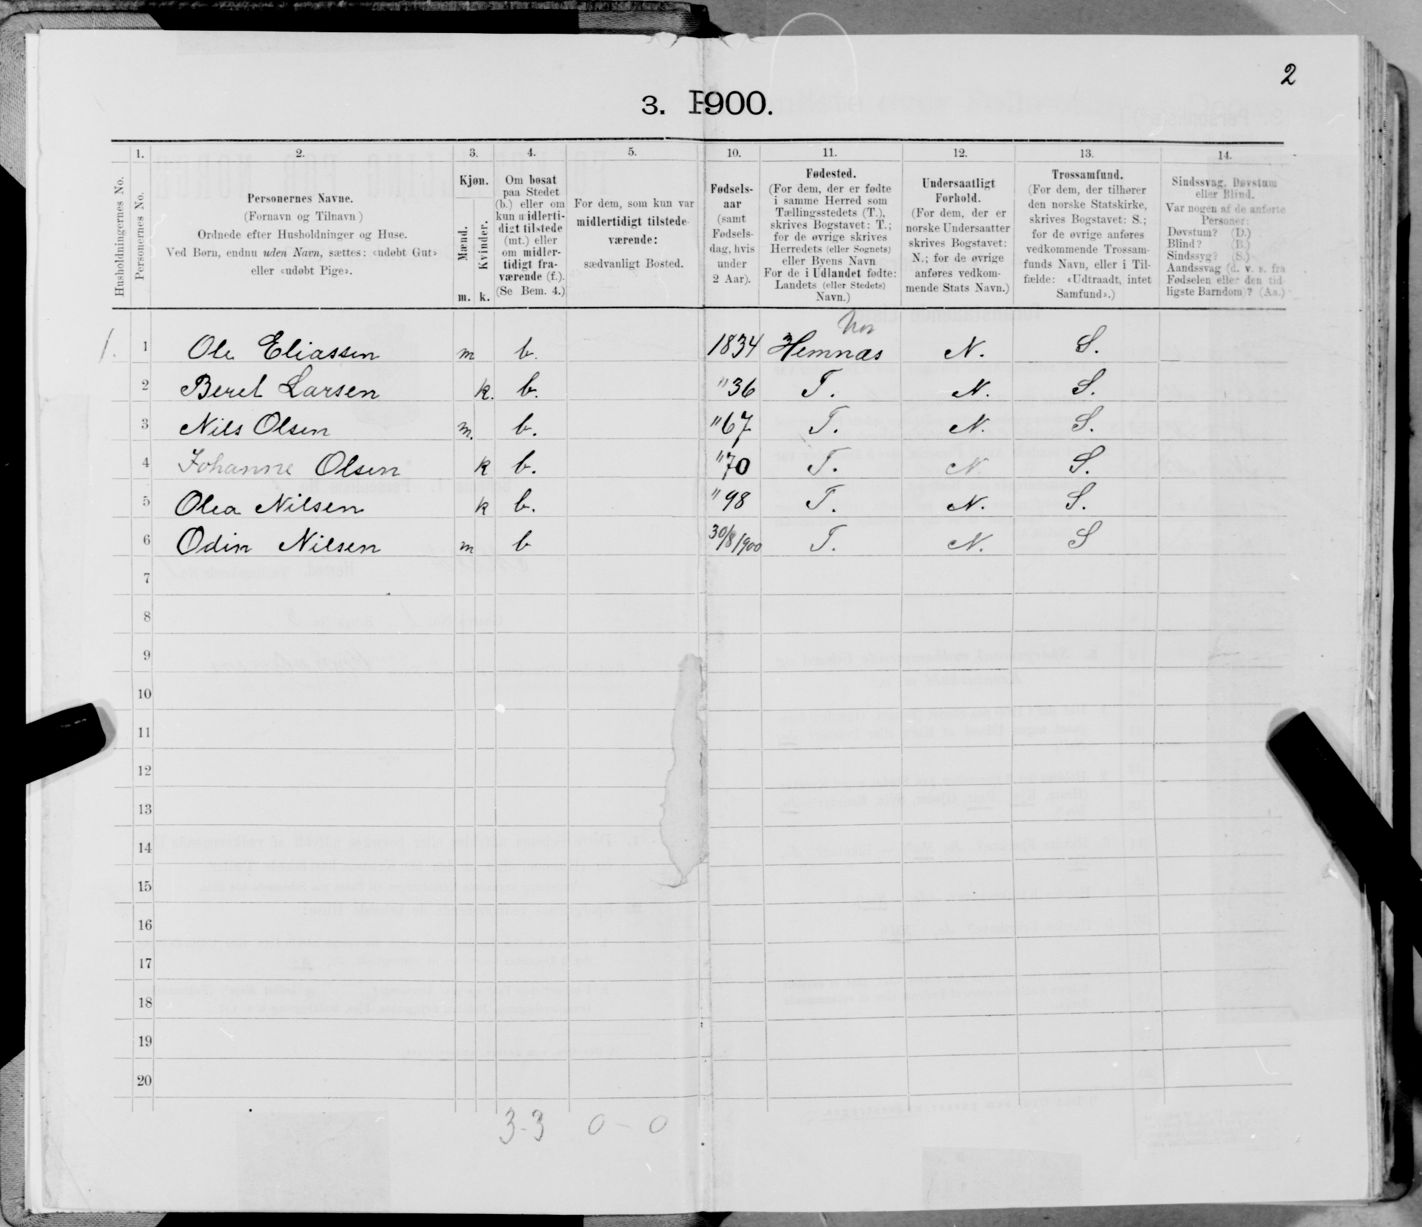 2
3. 1900.
Husholdningernes No.
1.
Personernes No.
2.
Personernes Navne.
(Fornavn og Tilnavn)
Ordnede efter Husholdninger og Huse.
Ved Børn, endnu uden Navn, sættes: «udøbt Gut»
eller «udøbt Pige».
3.
Kjøn.
Mænd.
Kvinder.
m. k.
4.
Om bosat
paa Stedet
(b.) eller om
kun midlerti-
digt tilstede
(mt.) eller
om midler-
tidigt fra-
værende (f.).
(Se Bem. 4.)
5.
For dem, som kun var
midlertidigt tilstede-
værende:
sædvanligt Bosted.
10.
Fødsels-
aar
(samt
Fødsels-
dag, hvis
under
2 Aar).
11.
Fødested.
(For dem, der er fødte
i samme Herred som
Tællingsstedets (T.),
skrives Bogstavet: T.;
for de øvrige skrives
Herredets (eller Sognets)
eller Byens Navn
For de i Udlandet fødte:
Landets (eller Stedets)
Navn.)
12.
Undersaatligt
Forhold.
(For dem, der er
norske Undersaatter
skrives Bogstavet:
N.; for de øvrige
anføres vedkom-
mende Stats Navn.)
13.
Trossamfund.
(For dem, der tilhører
den norske Statskirke,
skrives Bogstavet: S.;
for de øvrige anføres
vedkommende Trossam-
funds Navn, eller i Til-
fælde: «Udtraadt, intet
Samfund».)
14.
Sindssvag, Døvstum
eller Blind.
Var nogen af de anførte
Personer:
Døvstum? (D.)
Blind? (B.)
Sindssyg? (S.)
Aandssvag (d. v. s. fra
Fødselen eller den tid-
ligste Barndom? (Aa.)
Nor
1. 1 Ole Eliassen m b. 1834 Hemnæs N. S.
2 Beret Larsen k. b. "36 T. N. S.
3 Nils Olsen m. b. "67 T. N. S.
4 Johanne Olsen k b. "70 T. N S.
5 Olea Nilsen k b. "98 T. N. S.
6 Odin Nilsen m b 30/8 1900 T. N. S
7
8
9
10
11
12
13
14
15
16
17
18
19
20
3-3 0-0